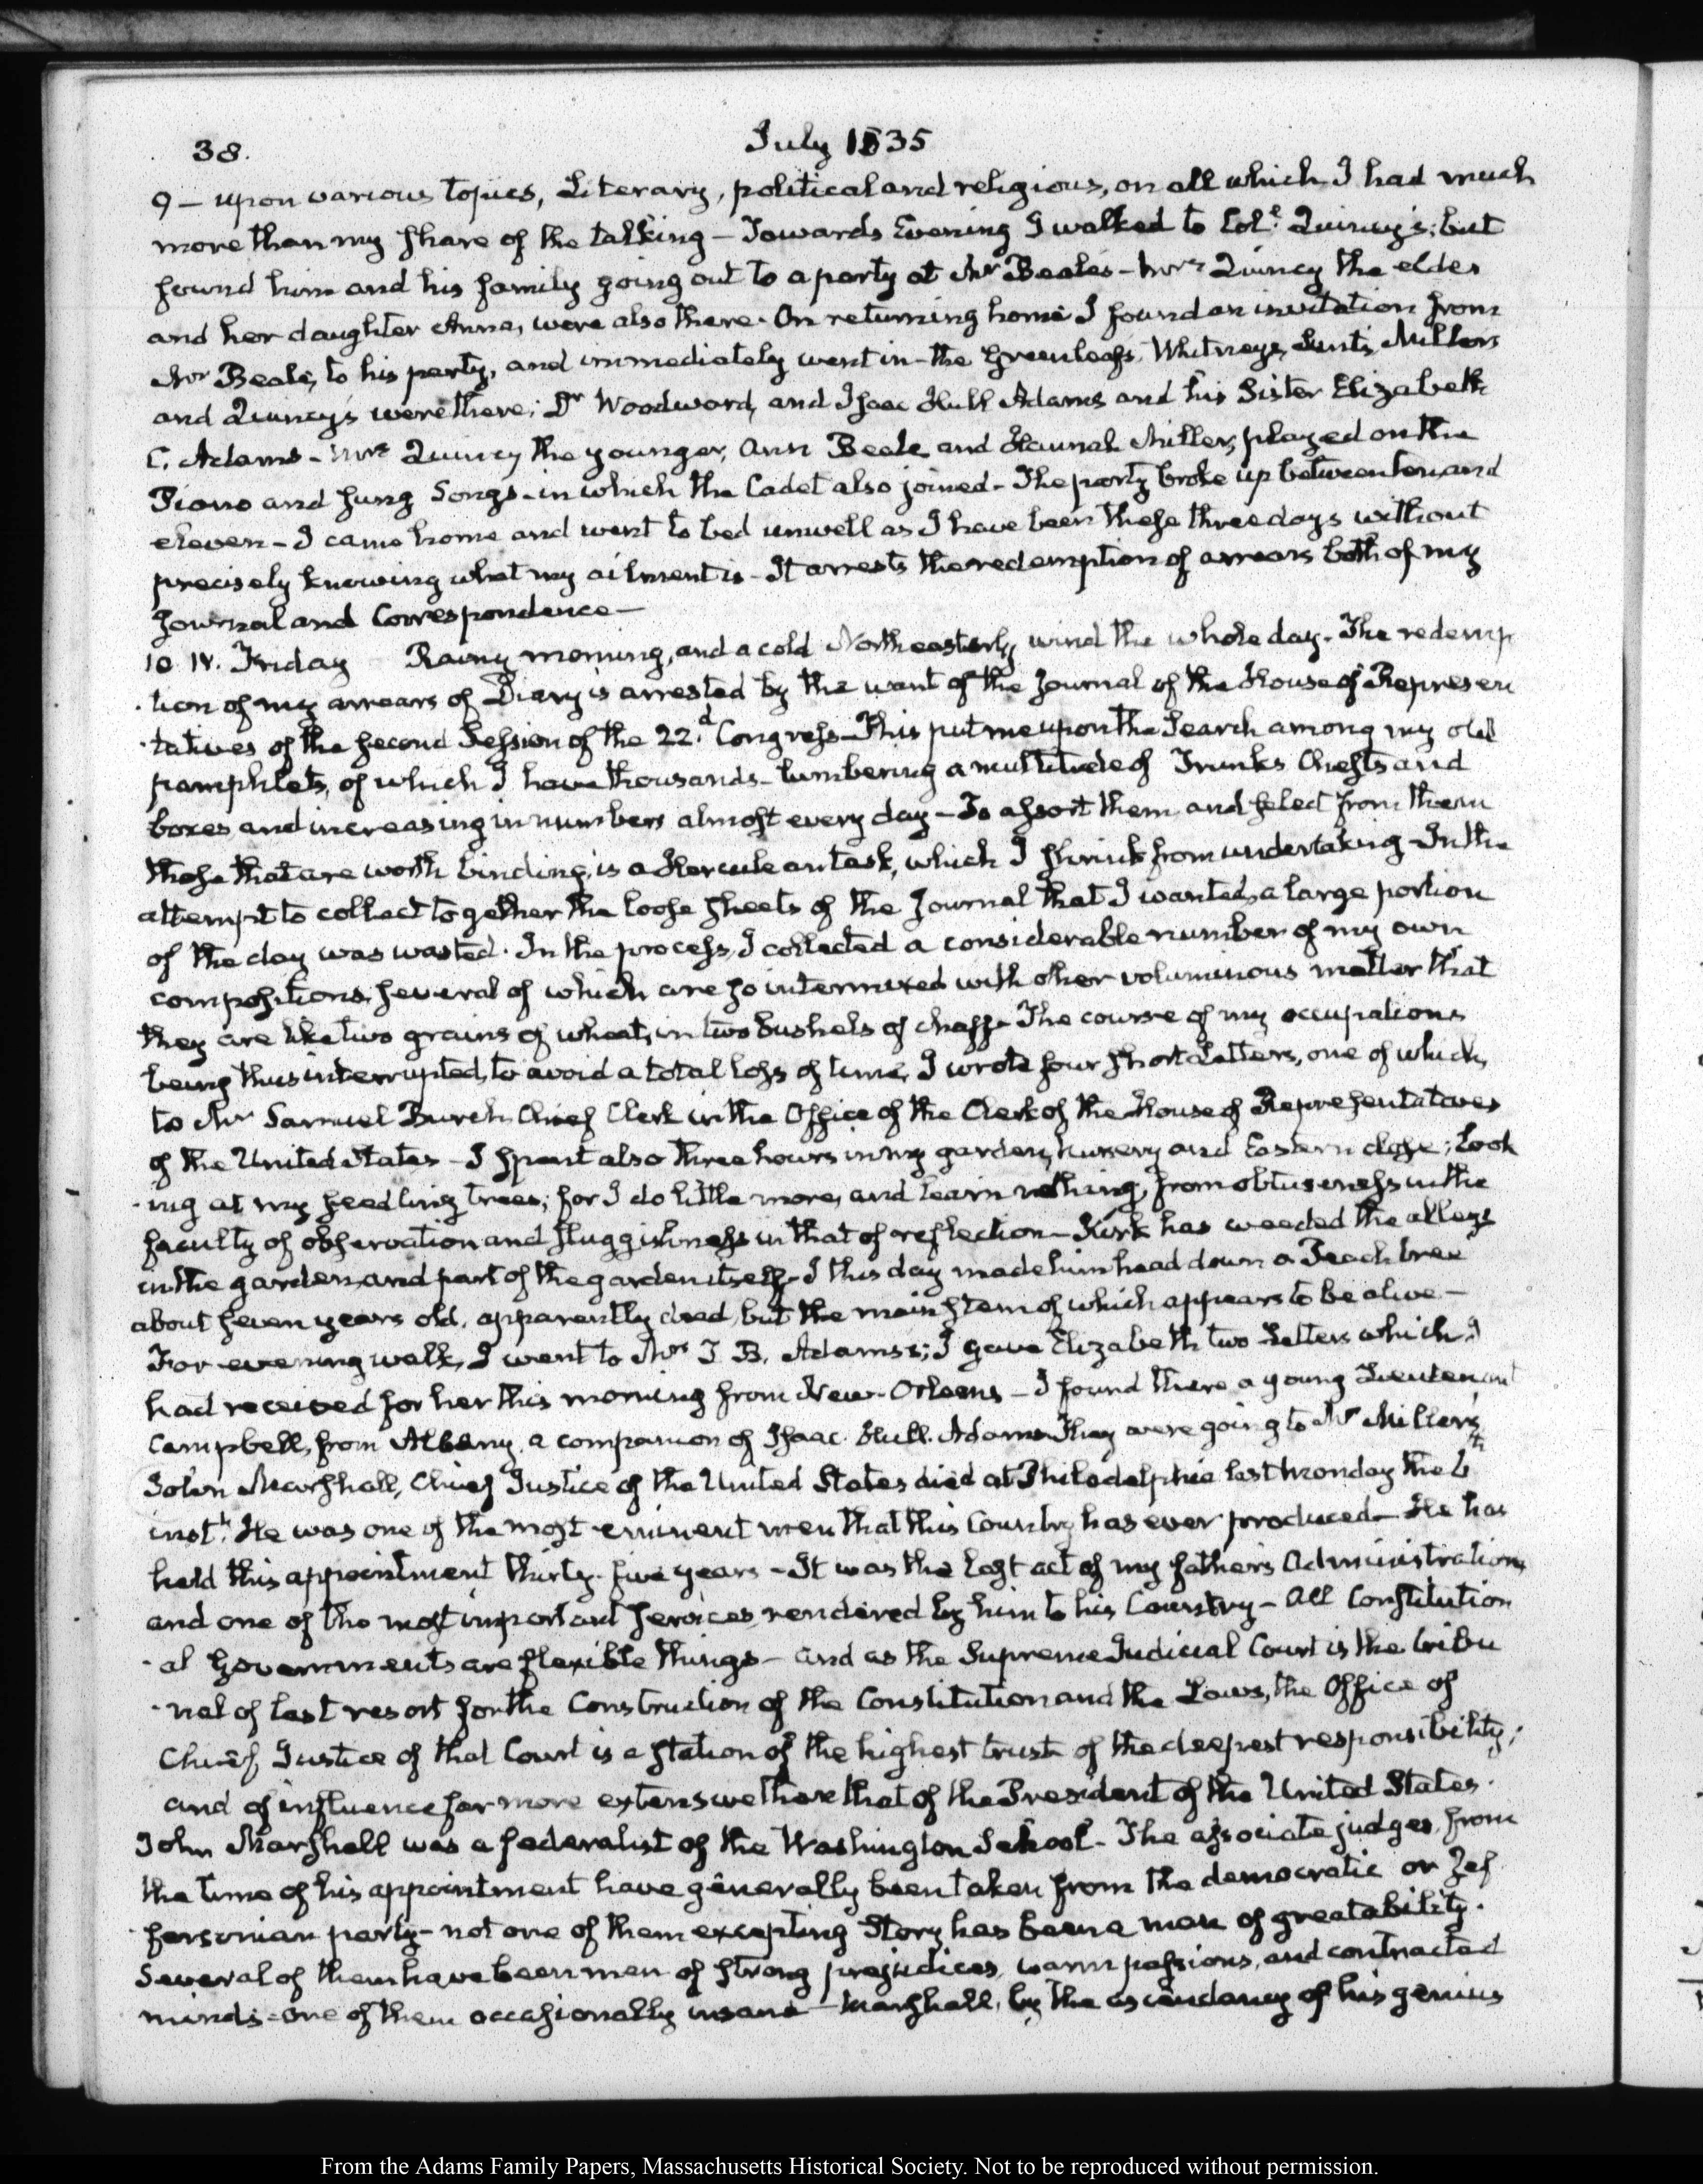 38.
July 1835
9 — upon various topics, Literary, political and religious, on all which I had much
more than my share of the talking — Towards Evening I walked to Col.l Quincy's; but
found him and his family going out to a party at Mr Beale's — Mrs Quincy the elder
and her daughter Anna, were also there. On returning home I found an invitation from
Mr Beale, to his party, and immediately went in — the Greenleafs, Whitneys, Lunts, Millers
and Quincy's were there; Dr Woodward, and Isaac Hull Adams and his Sister Elizabeth
C. Adams — Mrs Quincy the younger, Ann Beale and Hannah Miller, played on the
Piano and sung Songs — in which the Cadet also joined — The party broke up between ten and
eleven — I came home and went to bed unwell as I have been these three days without
precisely knowing what my ailment is — It arrests the redemption of arrears both of my
Journal and Correspondence —
10 IV. Friday Rainy morning, and a cold Northeasterly wind the whole day. The redemp
tion of my arrears of Diary is arrested by the want of the Journal of the House of Represen
tatives of the second Session of the 22.d Congress — This put me upon the Search among my old
pamphlets, of which I have thousands — lumbering a multitude of Trunks Chests and
boxes and increasing in numbers almost every day — To assort them and select from them
those that are worth binding, is a Herculean task, which I shrink from undertaking — In the
attempt to collect together the loose sheets of the Journal that I wanted, a large portion
of the day was wasted. In the process, I collected a considerable number of my own
compositions, several of which are so intermixed with other voluminous matter that
they are like two grains of wheat, in two bushels of chaff — The course of my occupations
being thus interrupted, to avoid a total loss of time, I wrote four short Letters, one of which,
to Mr Samuel Burch Chief Clerk in the Office of the Clerk of the House of Representatives
of the United States — I spent also three hours in my garden, nursery and Eastern close; look
ing at my seedling trees; for I do little more, and learn nothing, from obtuseness in the
faculty of observation and sluggishness in that of reflection — Kirk has weeded the alleys
in the garden, and part of the garden itself — I this day made him head down a Peach tree
about seven years old, apparently dead, but the main stem of which appears to be alive —
For evening walk, I went to Mrs T. B. Adams's; I gave Elizabeth two Letters which I
had received for her this morning from New-Orleans — I found there a young Lieutenant
Campbell, from Albany, a companion of Isaac Hull Adams — They were going to Mr Miller's
John Marshall, Chief Justice of the United States died at Philadelphia last Monday the 6th
inst.t He was one of the most eminent men that this Country has ever produced — He has
held this appointment thirty-five years — It was the last act of my father's Administration,
and one of the most important services rendered by him to his Country — All Constitution
al Governments are flexible things — and as the Supreme Judicial Court is the tribu
nal of last resort for the Construction of the Constitution and the Laws, the Office of
Chief Justice of that Court is a station of the highest trust of the deepest responsibility;
and of influence far more extensive than that of the President of the United States.
John Marshall was a federalist of the Washington School — The associate judges, from
the time of his appointment have generally been taken from the democratic or Jef
fersonian party — not one of them excepting Story has been a man of great ability.
Several of them have been men of strong prejudices, warm passions, and contracted
minds — one of them occasionally insane — Marshall, by the ascendancy of his genius
From the Adams Family Papers, Massachusetts Historical Society. Not to be reproduced without permission.